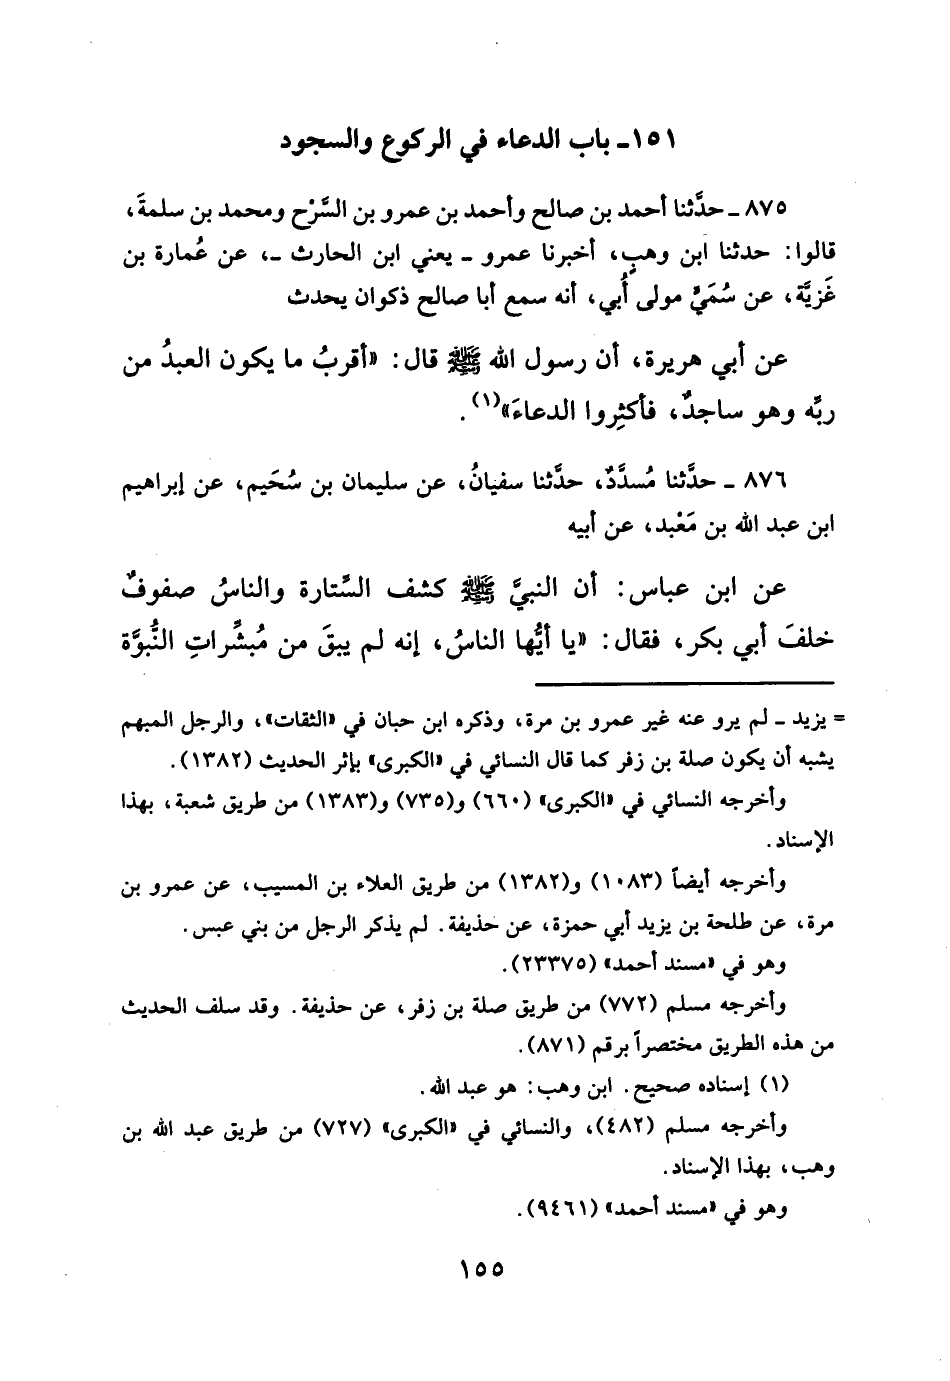 ١٥١ـ باب الدعاء في الركوع والسجود
٨٧٥ ـ حدَّثنا أحمد بن صالح وأحمد بن عمرو بن السَّرْح ومحمد بن سلمةَ،
قالوا: حدثنا ابن وهبٍ، أخبرنا عمرو ـ يعني ابن الحارث ـ، عن عُمارة بن
غَزِيَّة، عن سُمَيٍّ مولى أُبي، أنه سمع أبا صالح ذكوان يحدث
عن أبي هريرة، أن رسول الله ﷺ قال: «أقربُ ما يكون العبدُ من
ربِّه وهو ساجدٌ، فأكثِروا الدعاءَ»(١).
٨٧٦ ـ حدَّثنا مُسدَّدٌ، حدَّثنا سفيانُ، عن سليمان بن سُحَيم، عن إبراهيم
ابن عبد الله بن مَعْبد، عن أبيه
عن ابن عباس: أن النبيَّ ﷺ كشف السِّتارة والناسُ صفوفٌ
خلفَ أبي بكر، فقال: «يا أيُّها الناسُ، إنه لم يبقَ من مُبشِّراتِ النُّبوَّة
= يزيد ـ لم يرو عنه غير عمرو بن مرة، وذكره ابن حبان في «الثقات»، والرجل المبهم
يشبه أن يكون صلة بن زفر كما قال النسائي في «الكبرى» بإثر الحديث (١٣٨٢).
وأخرجه النسائي في «الكبرى» (٦٦٠) و(٧٣٥) و(١٣٨٣) من طريق شعبة، بهذا
الإسناد.
وأخرجه أيضاً (١٠٨٣) و(١٣٨٢) من طريق العلاء بن المسيب، عن عمرو بن
مرة، عن طلحة بن يزيد أبي حمزة، عن حذيفة. لم يذكر الرجل من بني عبس.
وهو في «مسند أحمد» (٢٣٣٧٥).
وأخرجه مسلم (٧٧٢) من طريق صلة بن زفر، عن حذيفة. وقد سلف الحديث
من هذه الطريق مختصراً برقم (٨٧١).
(١) إسناده صحيح. ابن وهب: هو عبد الله.
وأخرجه مسلم (٤٨٢)، والنسائي في «الكبرى» (٧٢٧) من طريق عبد الله بن
وهب، بهذا الإسناد.
وهو في «مسند أحمد» (٩٤٦١).
١٥٥